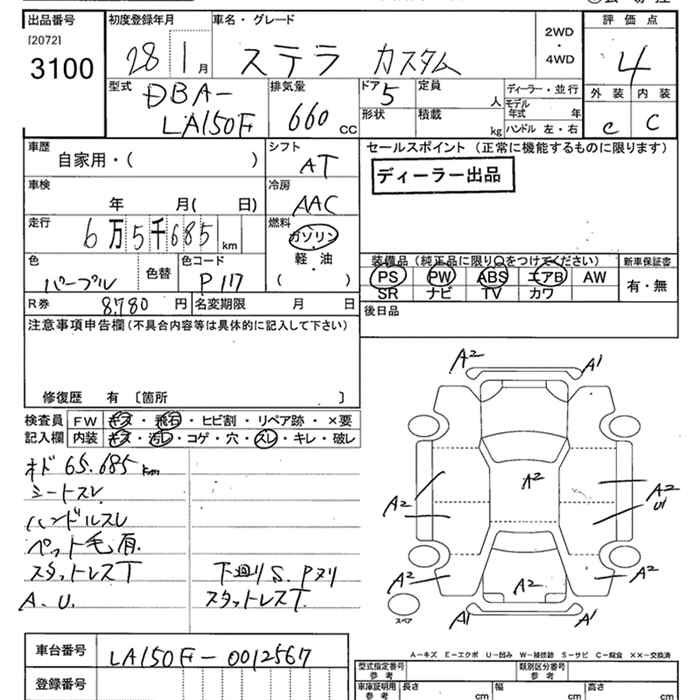 出品番号
[2072]
3100
初度登録年月
28 1 月
車名・グレード
ステラ カスタム
2WD
・
4WD
評価点
4
外装 内装
C C
型式
DBA-
LA150F
排気量
660 cc
ドア 5
定員 人
形状
積載 kg
ディーラー・並行
モデル
年式 年
ハンドル 左・右
車歴
自家用・( )
シフト
AT
セールスポイント (正常に機能するものに限ります)
ディーラー出品
車検
年 月( 日)
冷房
AAC
走行
6万5千685 km
燃料
ガソリン
軽・油
( )
色
パープル
色替
色コード
P117
装備品(純正品に限り○をつけてください)
PS PW ABS エアB AW
SR ナビ TV カワ
新車保証書
有・無
R券 8,780 円
名変期限 月 日
後日品
注意事項申告欄(不具合内容等は具体的に記入して下さい)
修復歴 有 〔箇所 〕
検査員
記入欄
FW キズ・飛石・ヒビ割・リペア跡・×要
内装 キズ・汚レ・コゲ・穴・スレ・キレ・破レ
オド 65.685 km
シートスレ
ハンドルスレ
ペット毛有.
スタットレスT
A.U.
下廻りS.Pヌリ
スタットレスT.
A2 A1
A2
A2
A2
U1
A2
A2
A2
A1 A1
スペア
A－キズ E－エクボ U－凹み W－補修跡 S－サビ C－腐食 ××－交換済
車台番号 LA150F-0012567
登録番号
型式指定番号
参考
類別区分番号
参考
車庫証明用
参考
長さ cm
幅 cm
高さ cm